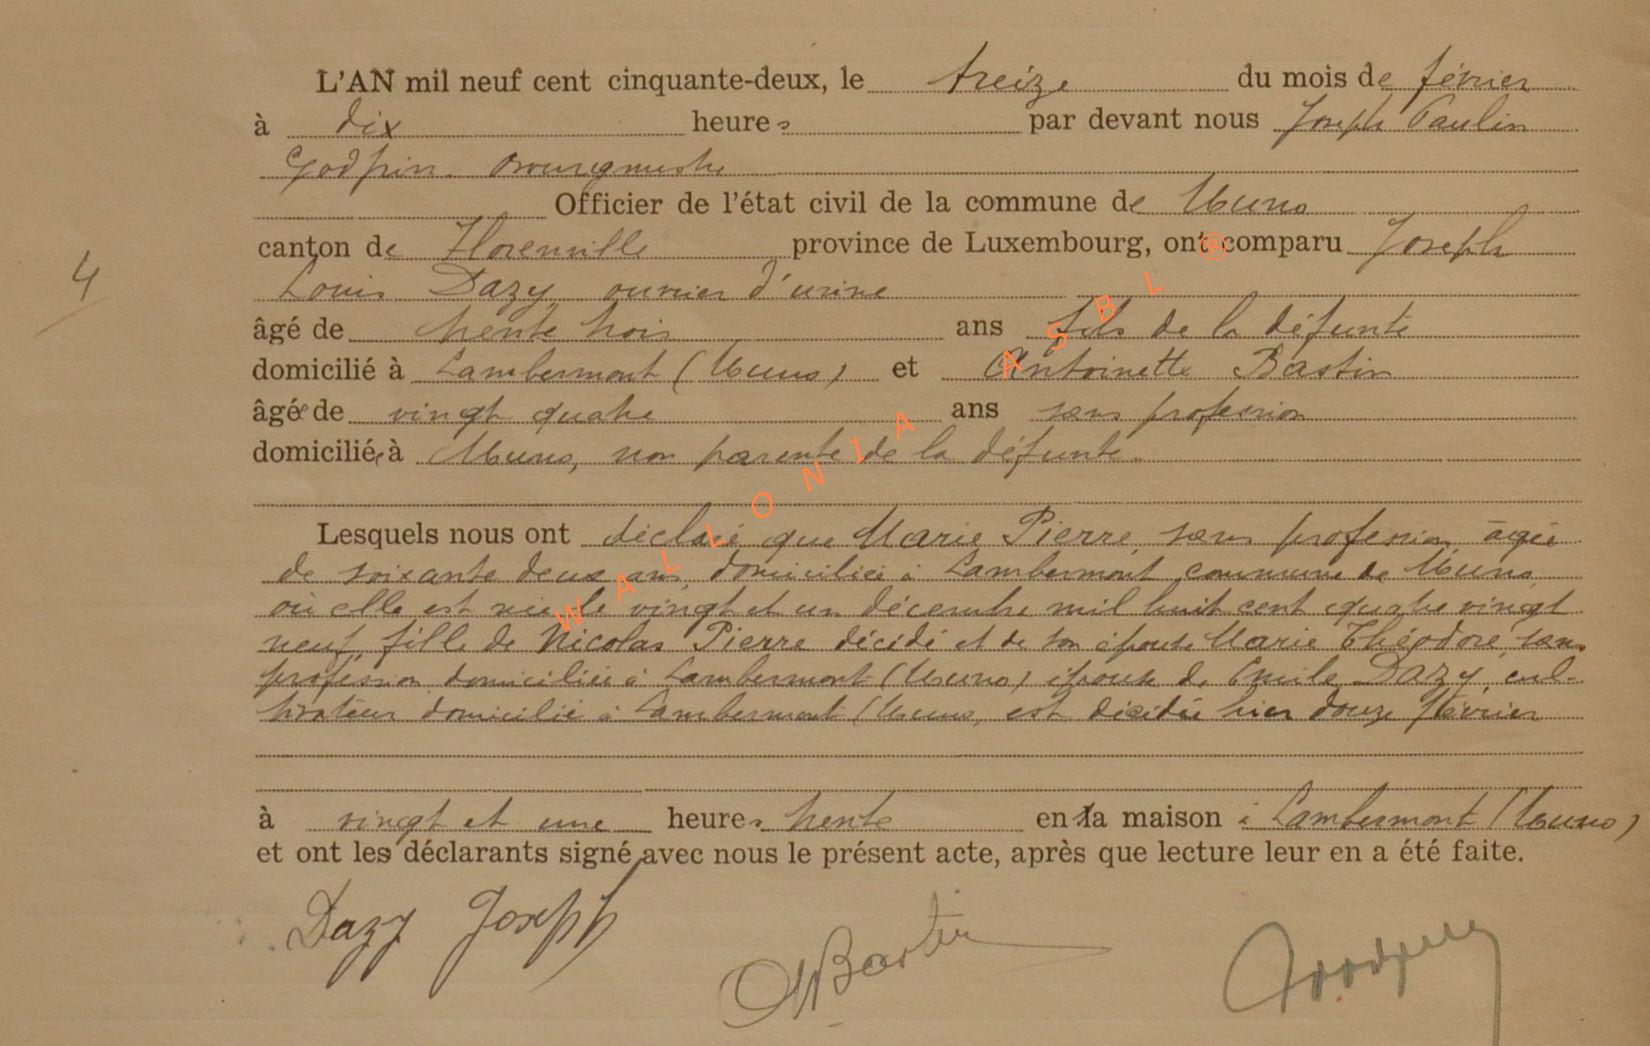 L'AN mil neuf cent cinquante-deux, le treize du mois de février
à dix heures par devant nous Joseph Paulin
Godfrin bourgmestre
Officier de l'état civil de la commune de Muno
canton de Florenville province de Luxembourg, ont comparu Joseph
Louis Dazy ouvrier d'usine
âgé de trente trois ans fils de la défunte
domicilié à Lambermont (Muno) et Antoinette Bastin
âgée de vingt quatre ans sans profession
domiciliée à Muno, non parente de la défunte
Lesquels nous ont déclaré que Marie Pierre, sans profession, âgée
de soixante deux ans, domiciliée à Lambermont commune de Muno
où elle est née le vingt et un décembre mil huit cent quatre vingt
neuf, fille de Nicolas Pierre décédé et de son épouse Marie Théodore, sans
profession domiciliée à Lambermont (Muno) épouse de Emile Dazy, cul-
tivateur domicilié à Lambermont (Muno, est décédée hier douze février
à vingt et une heures trente en la maison à Lambermont (Muno)
et ont les déclarants signé avec nous le présent acte, après que lecture leur en a été faite.
4
Dazy Joseph
A Bastin
WALLONIA ASBL ®